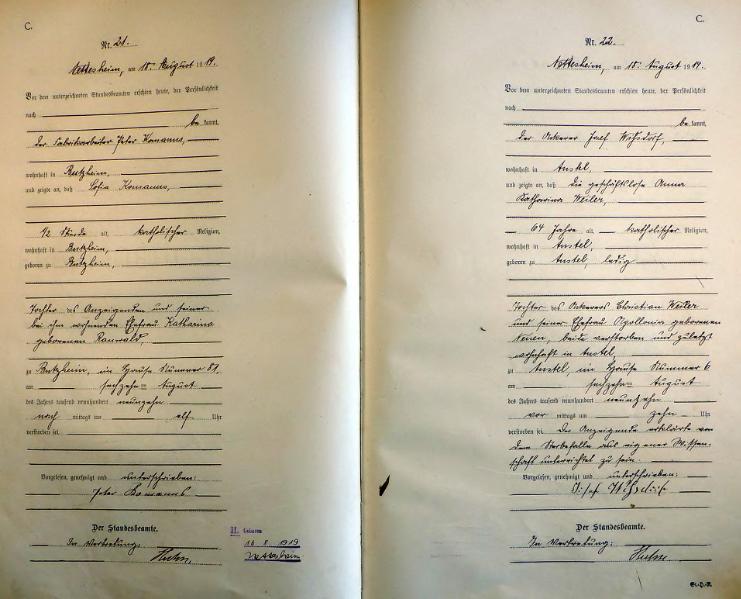 C.
Nr. 21.
Nettesheim, am 18. August 1919.
Vor dem unterzeichneten Standesbeamten erschien heute, der Persönlichkeit
nach
be kannt,
der Fabrikarbeiter Peter Komanns,
wohnhaft in Butzheim,
und zeigte an, daß Sofia Komanns,
1/2 Stunde alt, katholischer Religion,
wohnhaft in Butzheim,
geboren zu Butzheim,
Tochter des Anzeigenden und seiner
bei ihm wohnenden Ehefrau Katharina
geborenen
zu Butzheim, im Hause Nummer 81,
am sechzehnten August
des Jahres tausend neunhundert neunzehn
nach mittags um elf Uhr
verstorben sei.
Vorgelesen, genehmigt und unterschrieben:
Peter Komanns
Der Standesbeamte.
In Vertretung:
H.
1919
Nettesheim
C.
Nr. 22.
Nettesheim, am 18. August 1919.
Vor dem unterzeichneten Standesbeamten erschien heute, der Persönlichkeit
nach
be kannt,
der Ackerer Josef
wohnhaft in Anstel,
und zeigte an, daß die geschäftslose Anna
Katharina Weiler,
64 Jahre alt, katholischer Religion,
wohnhaft in Anstel,
geboren zu Anstel, ledig
Tochter des Ackerers Christian Weiler
und seiner Ehefrau Apollonia geborenen
beide verstorben und zuletzt
wohnhaft in Anstel,
zu Anstel, im Hause Nummer 6
am sechzehnten August
des Jahres tausend neunhundert neunzehn
vor mittags um zehn Uhr
verstorben sei. Der Anzeigende erklärte von
dem Sterbefalle aus eigener Wissen-
schaft unterrichtet zu sein.
Vorgelesen, genehmigt und unterschrieben:
Josef
Der Standesbeamte.
In Vertretung: